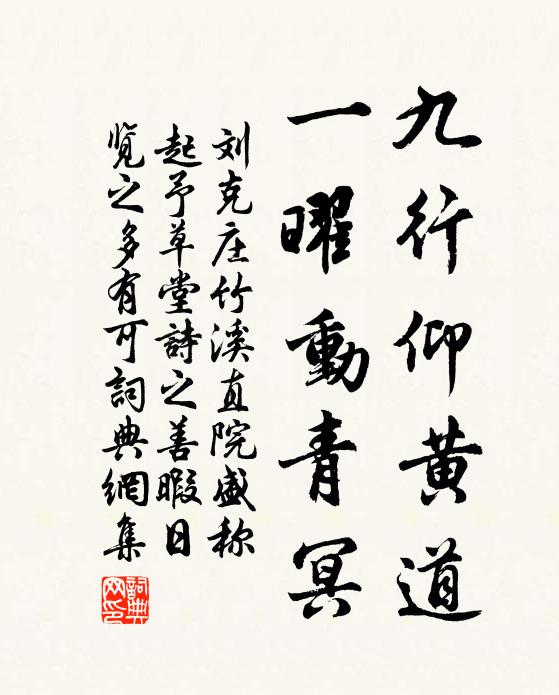 九行仰黄道
一曜動青冥
刘克庄竹溪直院盛称
起予草堂詩之善暇日
览之多有可詞典網集
詞典网印